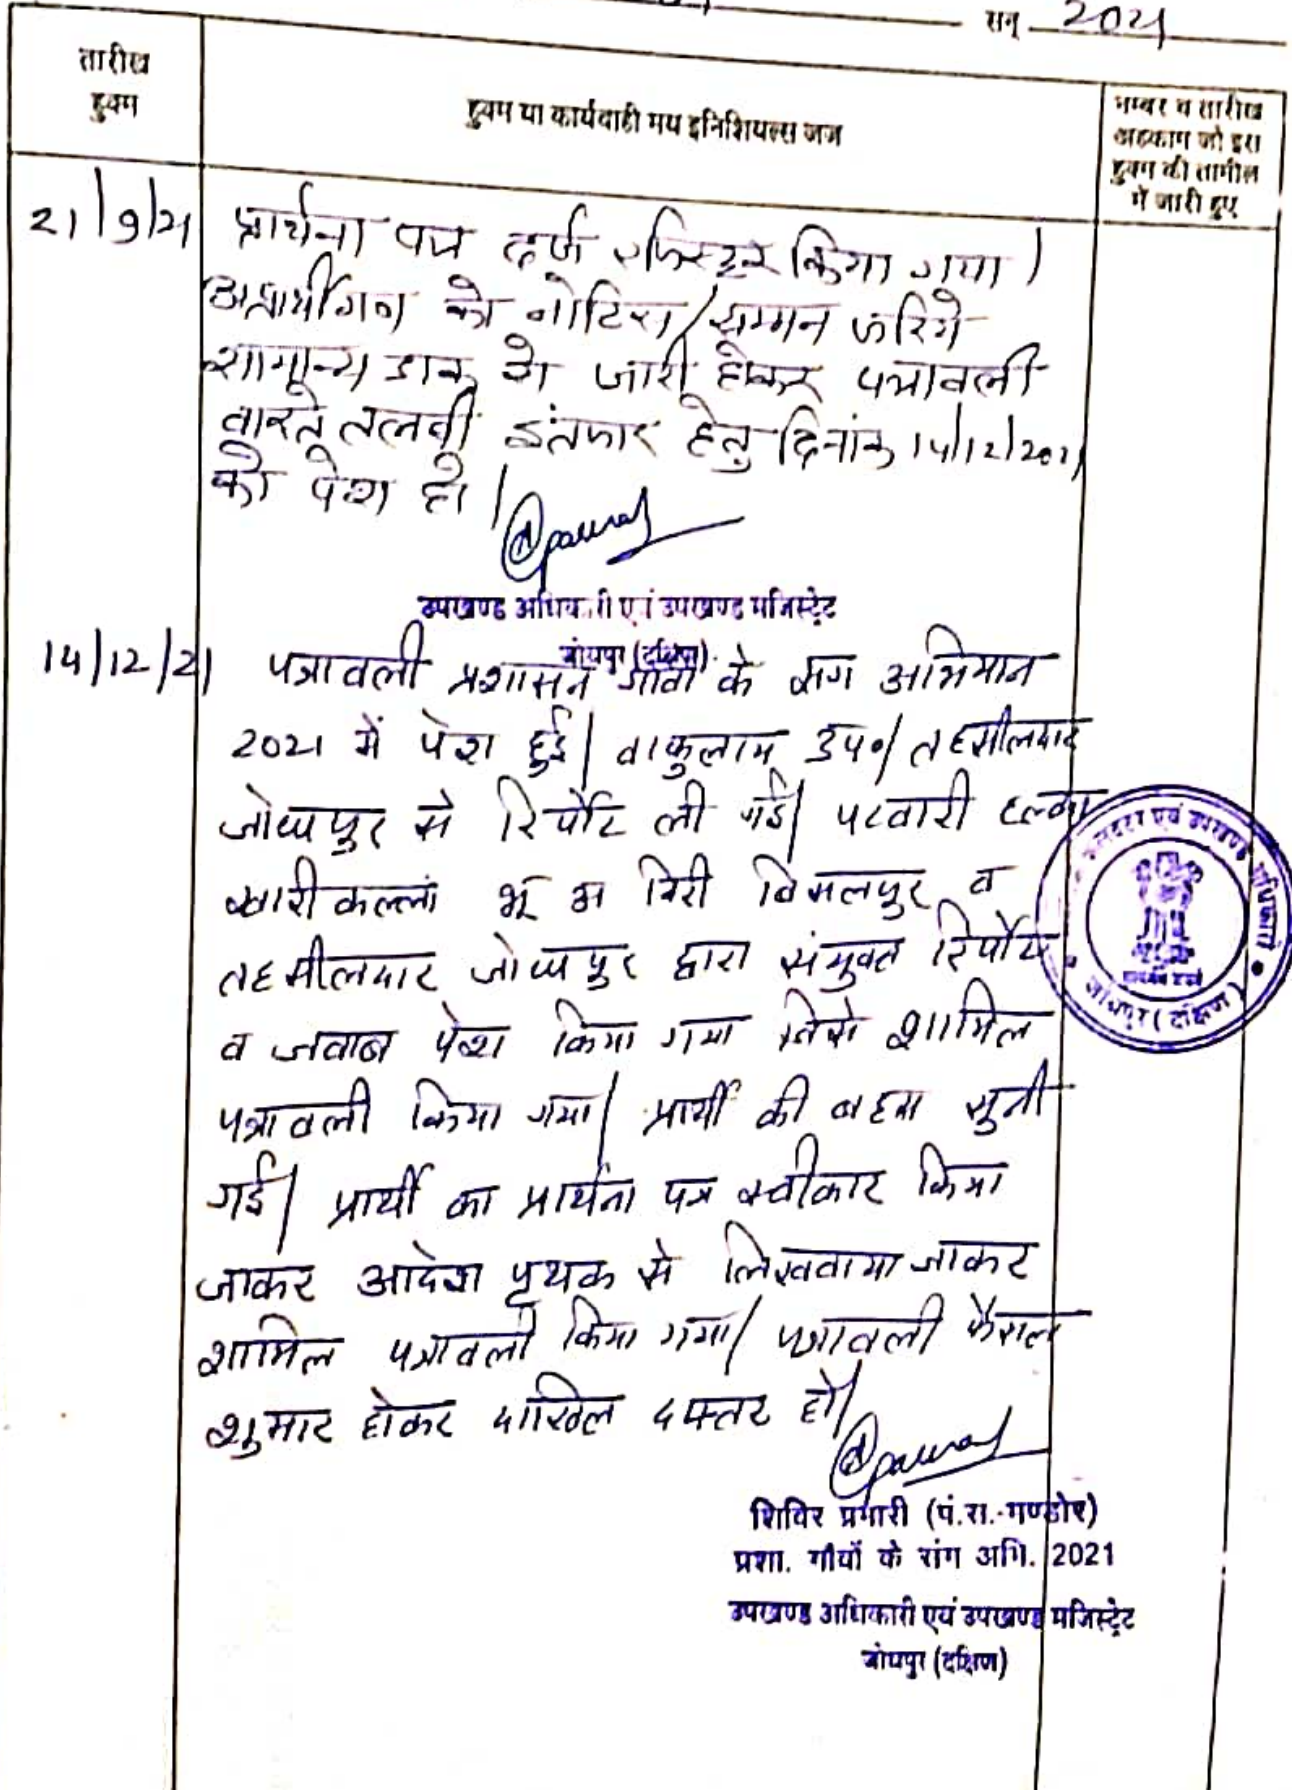 सन् 2021
तारीख
हुक्म
हुक्म या कार्यवाही मय इनिशियल्स जज
नम्बर व तारीख
अहकाम जो इस
हुक्म की तामील
में जारी हुए
21/9/21 प्रार्थना पत्र दर्ज रजिस्टर किया गया।
अप्रार्थीगण को नोटिस/सम्मन जरिये
सामान्य डाक से जारी होकर पत्रावली
वास्ते तलबी इंतजार हेतु दिनांक 14/12/2021
को पेश हो।
उपखण्ड अधिकारी एवं उपखण्ड मजिस्ट्रेट
जोधपुर (दक्षिण)
14/12/21 पत्रावली प्रशासन गांवो के संग अभियान
2021 में पेश हुई। वाकुलाय उप०। तहसीलदार
जोधपुर से रिर्पोट ली गई। पटवारी हल्का
खारीकल्लां भू अ निरी विसलपुर व
तहसीलदार जोधपुर द्वारा संयुक्त रिर्पोट
व जवाब पेश किया गया जिसे शामिल
पत्रावली किया गया। प्रार्थी की बहस सुनी
गई। प्रार्थी का प्रार्थना पत्र स्वीकार किया
जाकर आदेश पृथक से लिखवाया जाकर
शामिल पत्रावली किया गया। पत्रावली फैसल
शुमार होकर दाखिल दफ्तर हो।
शिविर प्रभारी (पं.स.-मण्डोर)
प्रशा. गाँवों के संग अभि. 2021
उपखण्ड अधिकारी एवं उपखण्ड मजिस्ट्रेट
जोधपुर (दक्षिण)
एवं उपखण्ड अधिकारी
जोधपुर (दक्षिण)